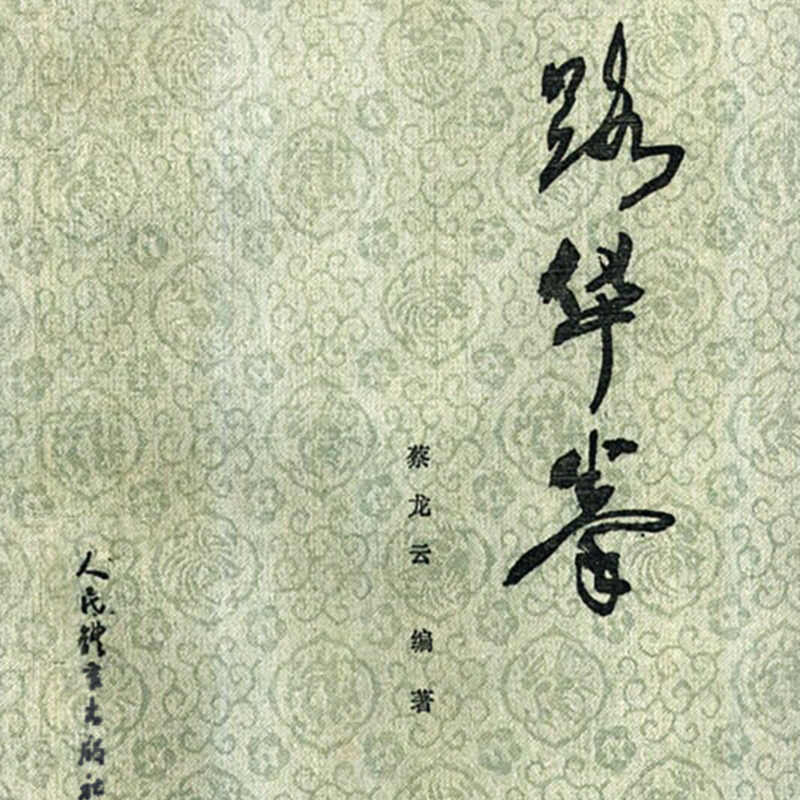 路华拳
蔡龙云 编著
人民体育出版社